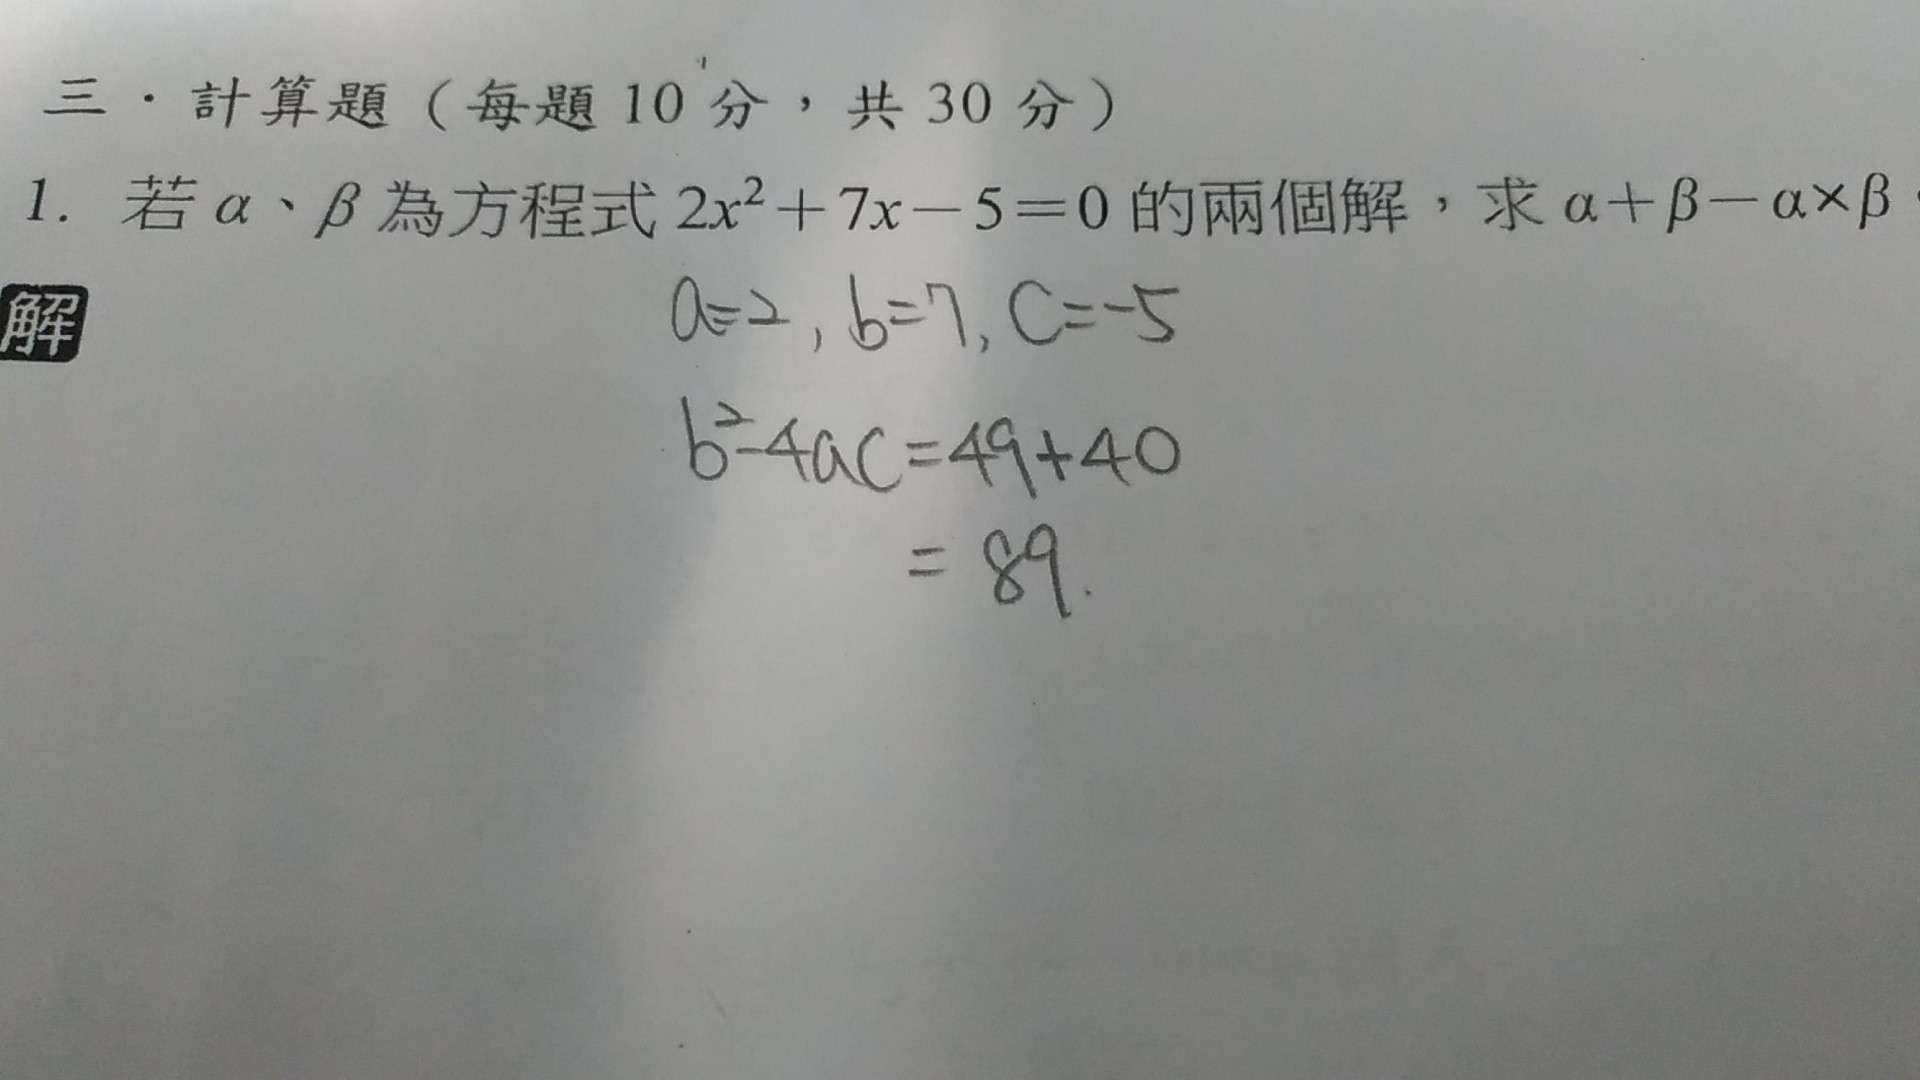 三．計算題（每題 10 分，共 30 分）
1. 若 α、β 為方程式 2x²＋7x－5＝0 的兩個解，求 α＋β－α×β
解
a=2, b=7, c=-5
b²-4ac=49+40
= 89.